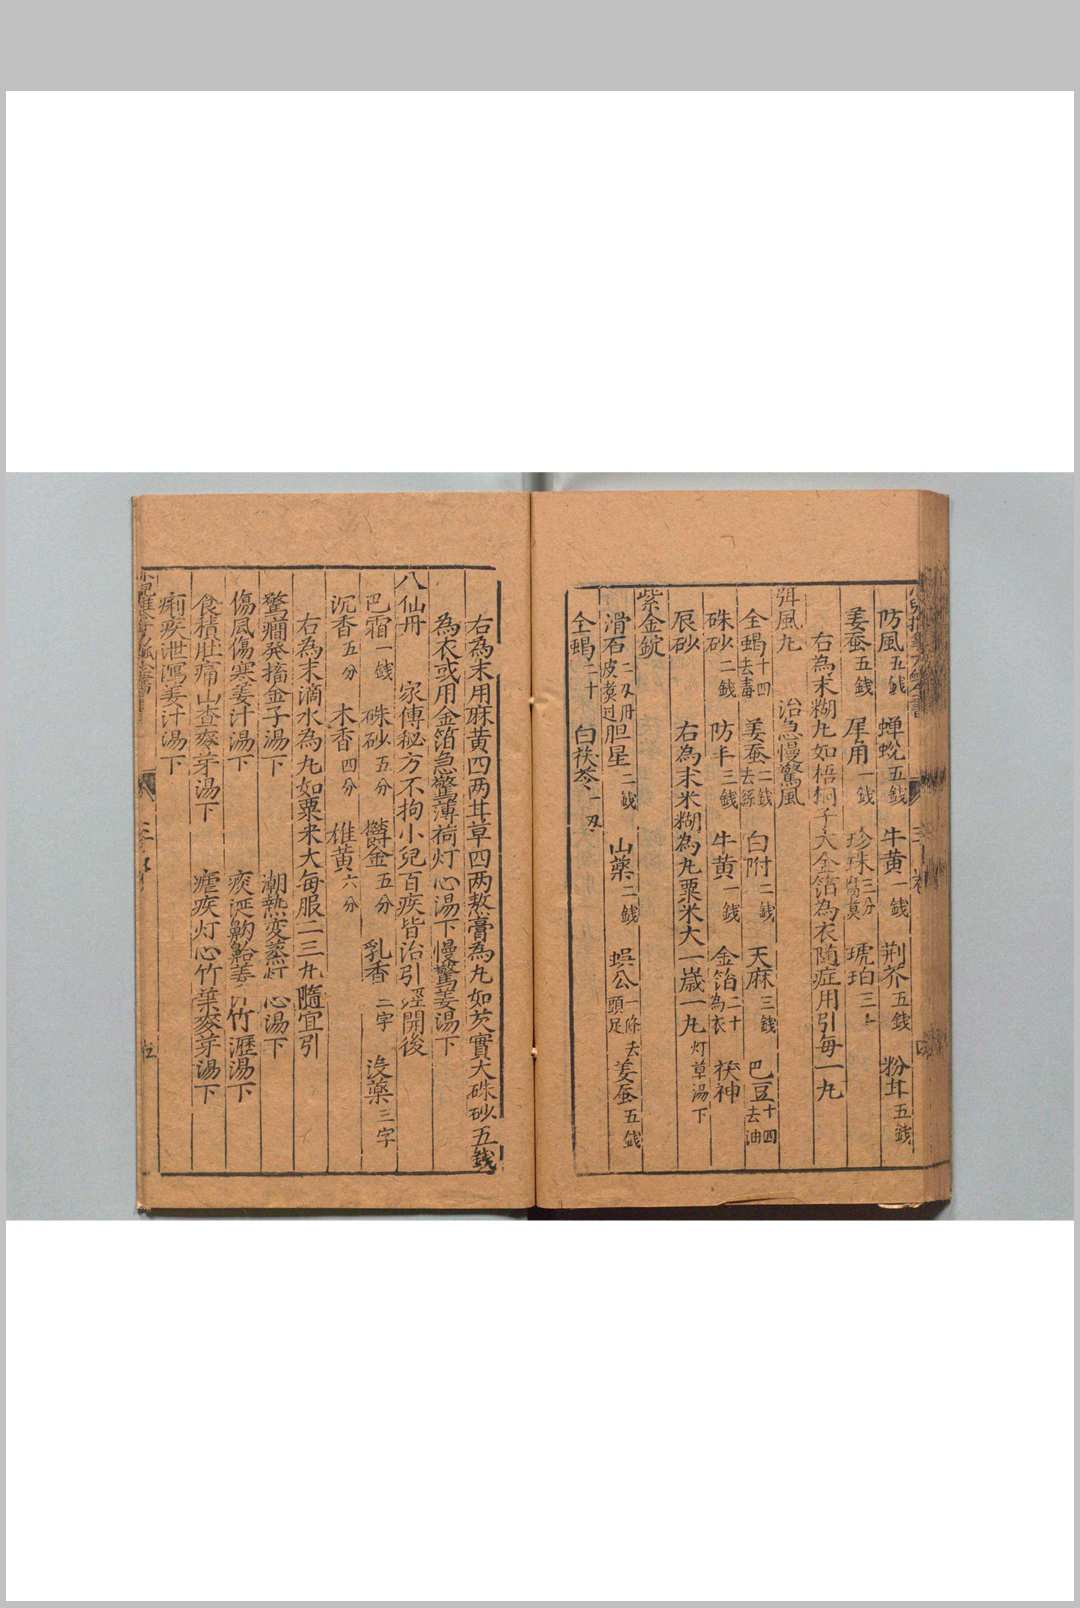 防風五錢 蟬蛻五錢 牛黃一錢 荆芥五錢 粉甘五錢
姜蚕五錢 犀角一錢 珍珠三分 琥珀三
右為末糊丸如梧桐子大金箔為衣随症用引每一丸
弭風丸 治急慢驚風
全蝎十四去毒 姜蚕二錢去絲 白附二錢 天麻三錢 巴豆十四去油
硃砂二錢 防丰三錢 牛黃一錢 金箔二十為衣 茯神
辰砂 右為末米糊為丸粟米大一歲一丸灯草湯下
紫金錠
滑石二刄丹皮煑过 胆星二錢 山藥二錢 蜈公一條去頭足 姜蚕五錢
全蝎二十 白茯苓一刄
右為末用麻黄四两甘草四两熬膏為丸如芡實大硃砂五錢
為衣或用金箔急驚薄荷灯心湯下慢驚姜湯下
八仙丹 家傳秘方不拘小兒百疾皆治引逕開後
巴霜一錢 硃砂五分 欝金五分 乳香二字 沒藥三字
沉香五分 木香四分 雄黄六分
右為末滴水為丸如粟米大每服二三丸隨宜引
驚癎發搐金子湯下 潮熱变蒸灯心湯下
傷風傷寒姜汁湯下 痰涎齁鮐姜竹瀝湯下
食積肚痛山查麥芽湯下 瘧疾灯心竹葉麥芽湯下
痢疾泄瀉姜汁湯下